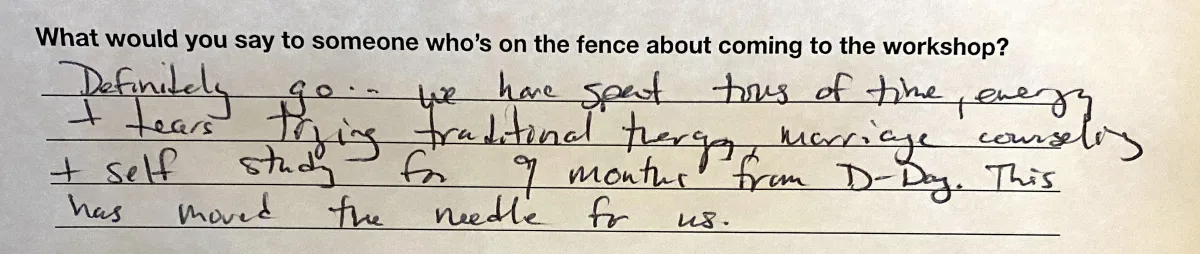 What would you say to someone who's on the fence about coming to the workshop?
Definitely go.. we have spent tons of time, energy
+ tears trying traditional therapy, marriage counseling
+ self study for 9 months from D-Day. This
has moved the needle for us.